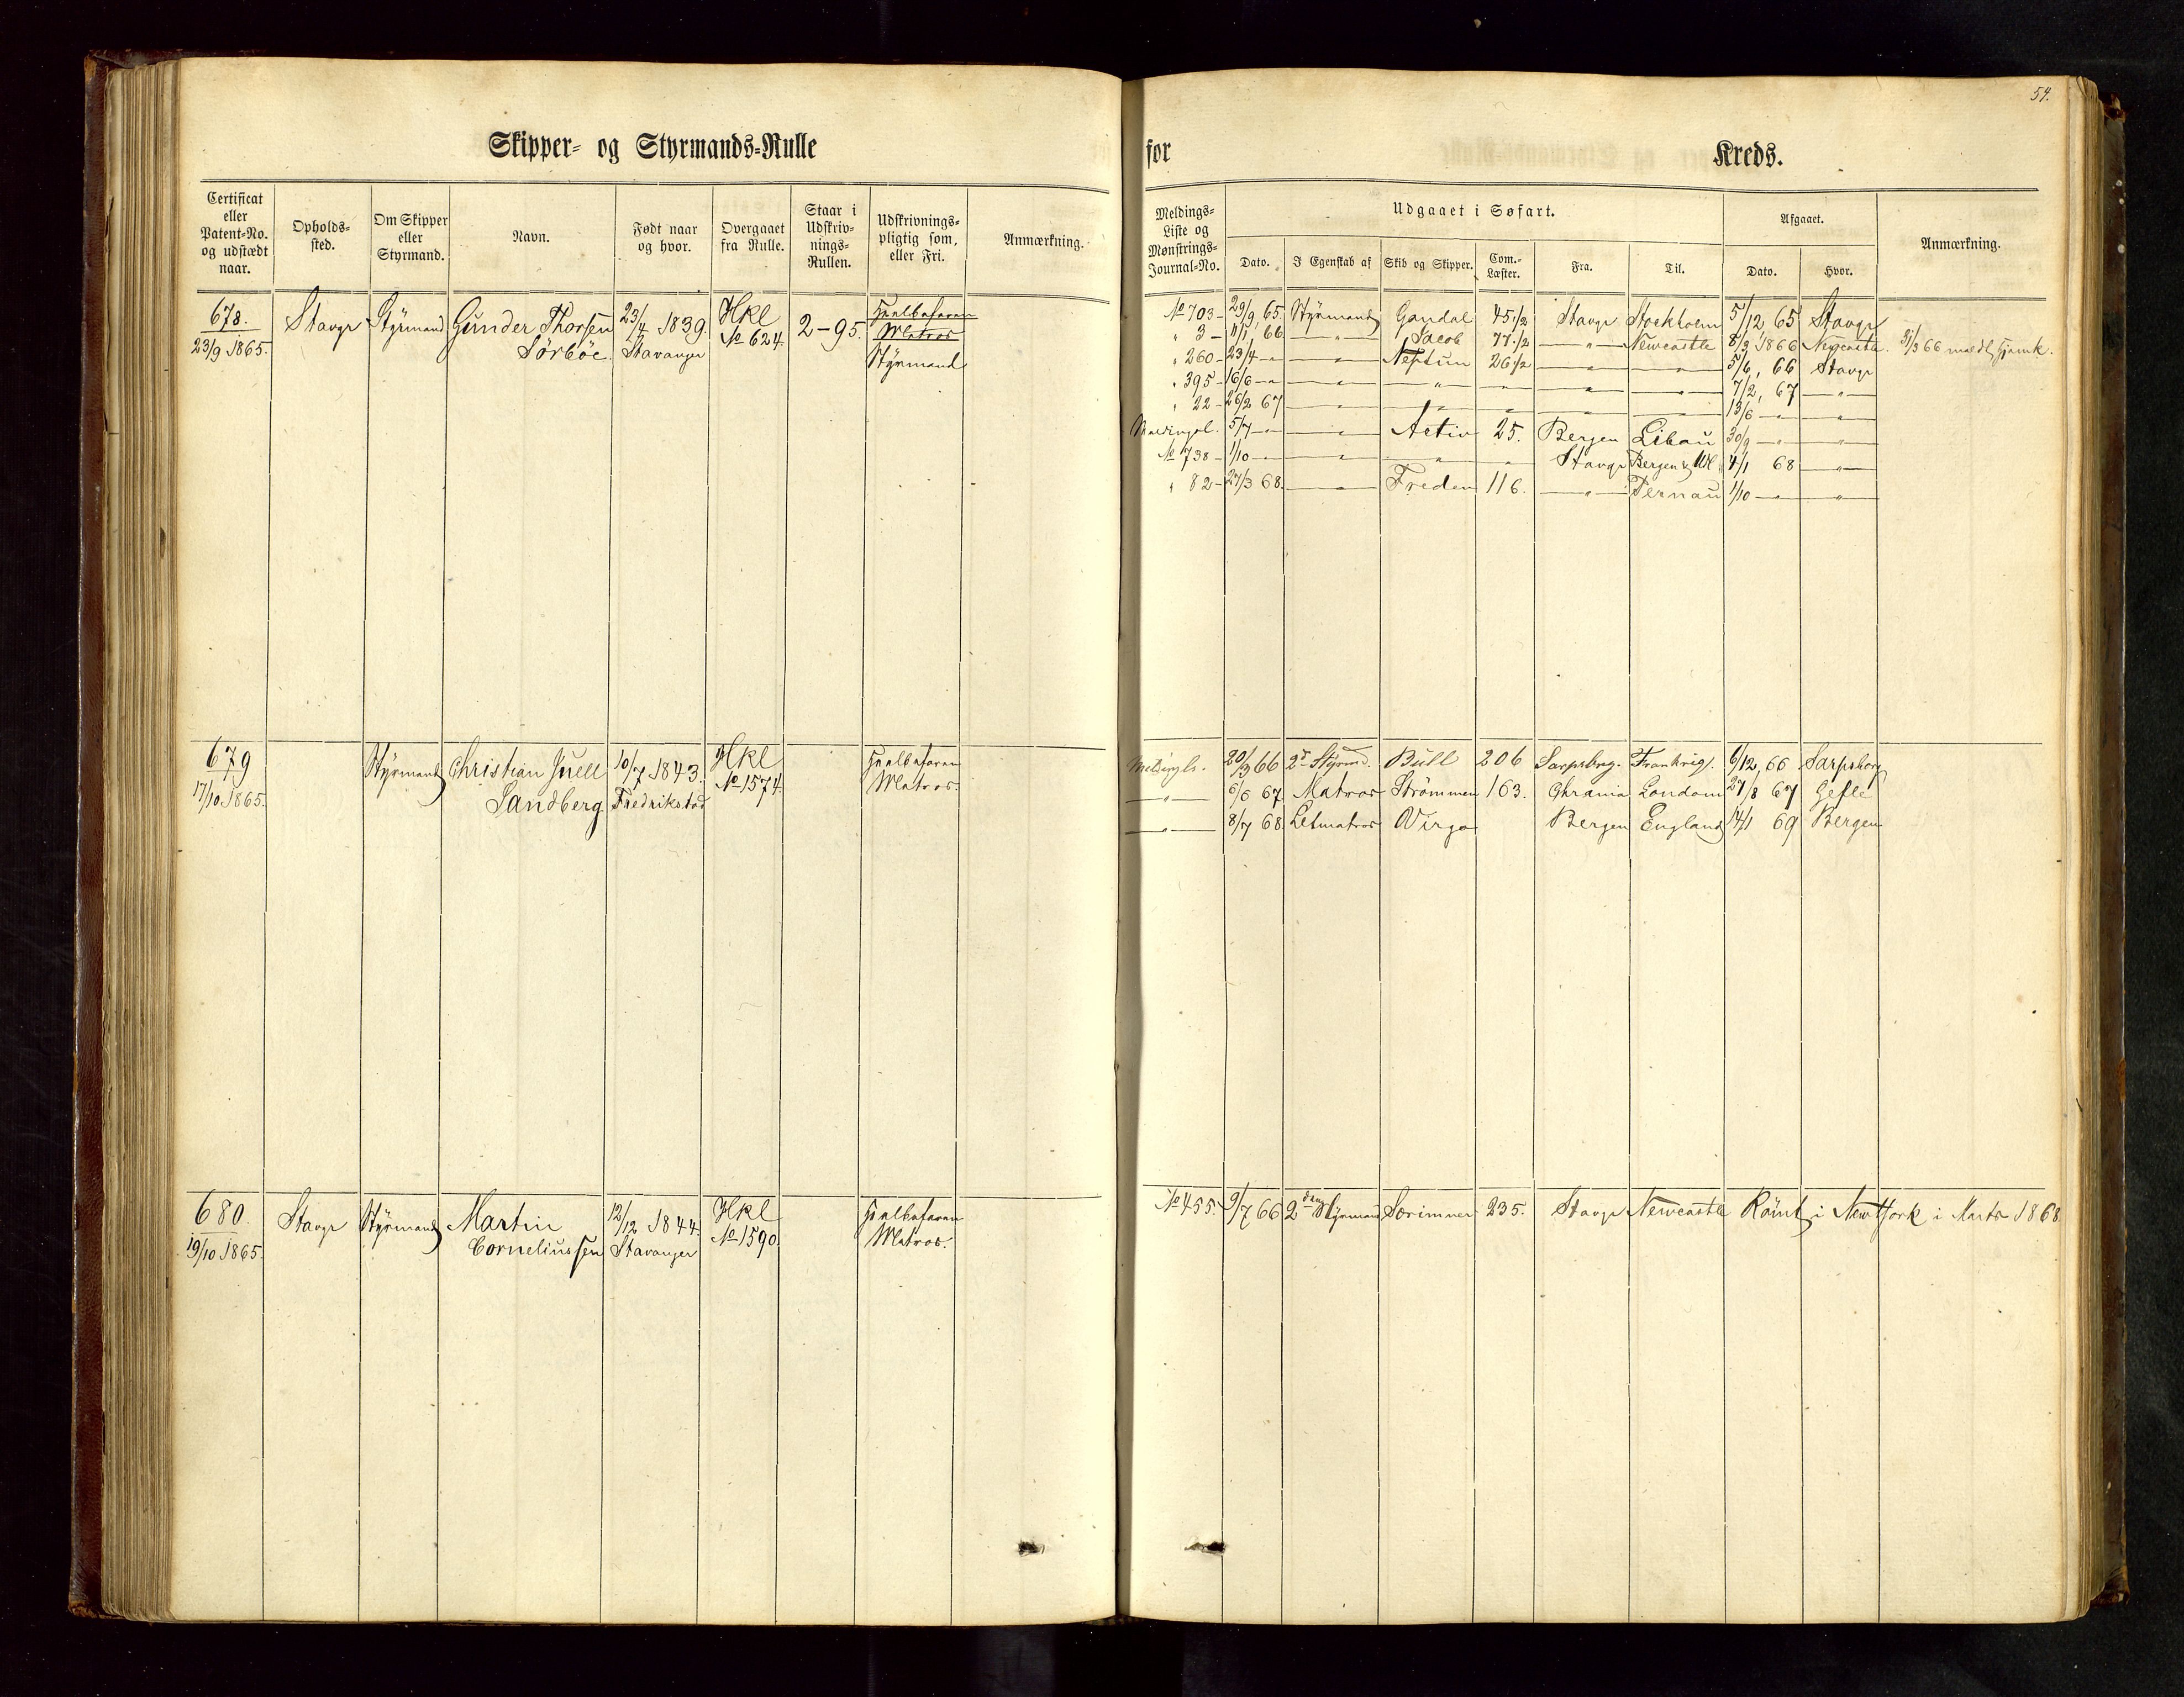 54.
Skipper- og Styrmands-Rulle for Kreds.
Certificat eller Patent-No. og udstædt naar.
Opholds-sted.
Om Skipper eller Styrmand.
Navn.
Født naar og hvor.
Overgaaet fra Rulle.
Staar i Udskriv-nings-Rullen.
Udskrivnings-pligtig som, eller Fri.
Anmærkning.
Meldings-Liste og Mønstrings-Journal-No.
Udgaaet i Søfart.
Dato.
I Egenskab af
Skib og Skipper.
Com.-Læster.
Fra.
Til.
Afgaaet.
Dato.
Hvor.
Anmærkning.
678. Stavgr Styrmand Gunder Thorsen 23/4 1839. Hkl 2-95. Hualbefaren
23/9 1865. Sörböe. Stavanger No 624. Matros
Styrmand
No 703 - 29/9, 65. Styrmand Gandal 45 1/2 Stavgr Stockholm 5/12 65 Stavgr
" 3 - 11/1 66 - " - Jacob 77 1/2 - " - Newcastle 8/3 1866 Newcastle. 31/3 66 meldt hjemk.
" 260 - 23/4 - " - " - Neptun 26 1/2 - - " - 5/6, 66 Stavgr
" 395 - 16/6 - " - " - " - " - " - " - 7/2, 67 - " -
" 22 - 26/2 67 - " - " - " - " - " - 13/6 - " - " -
Meldingsl. 5/7 - " - " - Activ 25. Bergen Libau 30/9 - " - " -
No 738 - 1/10 - " - " - " - " - Stavgr Bergen & Udl 4/1 68 - " -
" 82 - 27/3 68. - " - Freden 116. - " - Pernau 1/10 - " - " -
679 Styrmand Christian Juell 10/7 1843. Hkl Hualbefaren
17/10 1865. Sandberg Fredrikstad No 1574. Matros.
Meldingsl. 20/3 66 2n Styrmd. Bull 206 Sarpsbrg. Frankrig. 6/12, 66 Sarpsborg
- " - 6/6 67. Matros Strömmen 163. Chrania London 27/8 67 Gefle
- " - 8/7 68. Letmatros Virgo Bergen England 14/1 69 Bergen
680. Stavgr Styrmand Martin 12/12 1844. Hkl Hualbefaren
19/10 1865. Corneliussen Stavanger No 1590. Matros.
No 455. 9/7 66 2den Styrmand Sorimner 235. Stavgr Newcastle Römt i New York i Marts 1868